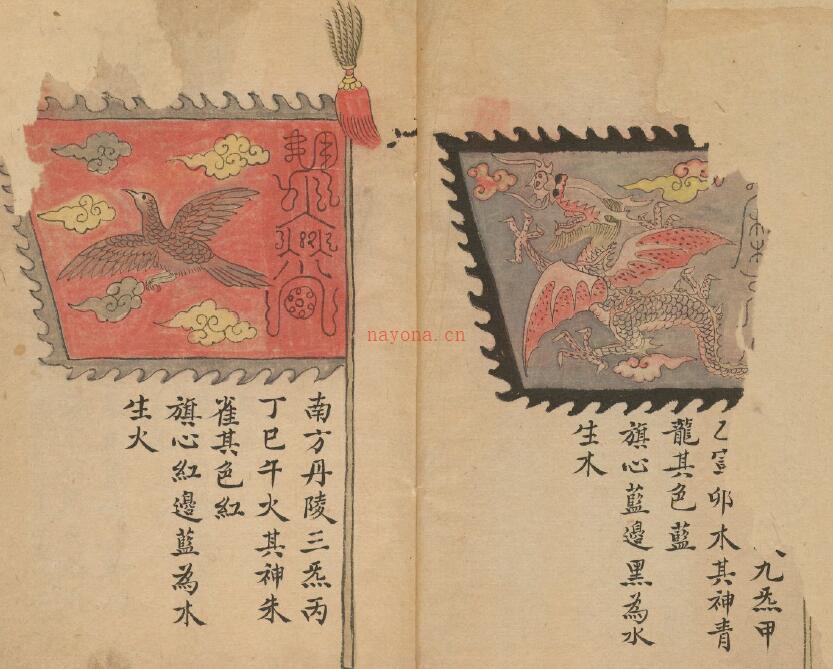 九炁甲
乙寅卯木其神青
龍其色藍
旗心藍邊黑為水
生木
南方丹陵三炁丙
丁巳午火其神朱
雀其色紅
旗心紅邊藍為木
生火
nayona.cn